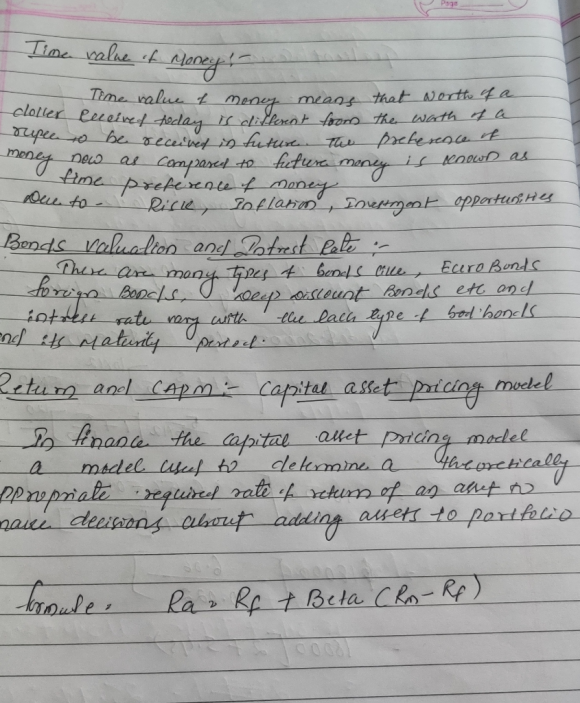 Page
Time value of Money :-
Time value of money means that worth of a
doller received today is different from the worth of a
rupee to be received in future. The preference of
money now as compared to future money is known as
time preference of money
Due to - Risk, Inflation, Investment opportunities
Bonds Valuation and Intrest Rate :-
There are many types of bonds are, Euro Bonds
foreign Bonds, Deep Discount Bonds etc and
intrest rate vary with the each type of bonds
and its Maturity period.
Return and CAPM :- Capital asset pricing model
In finance the capital asset pricing model
a model used to determine a theoretically
ppropriate required rate of return of an asset to
make decisions about adding assets to portfolio
formule = Ra = Rf + Beta (Rm - Rf)